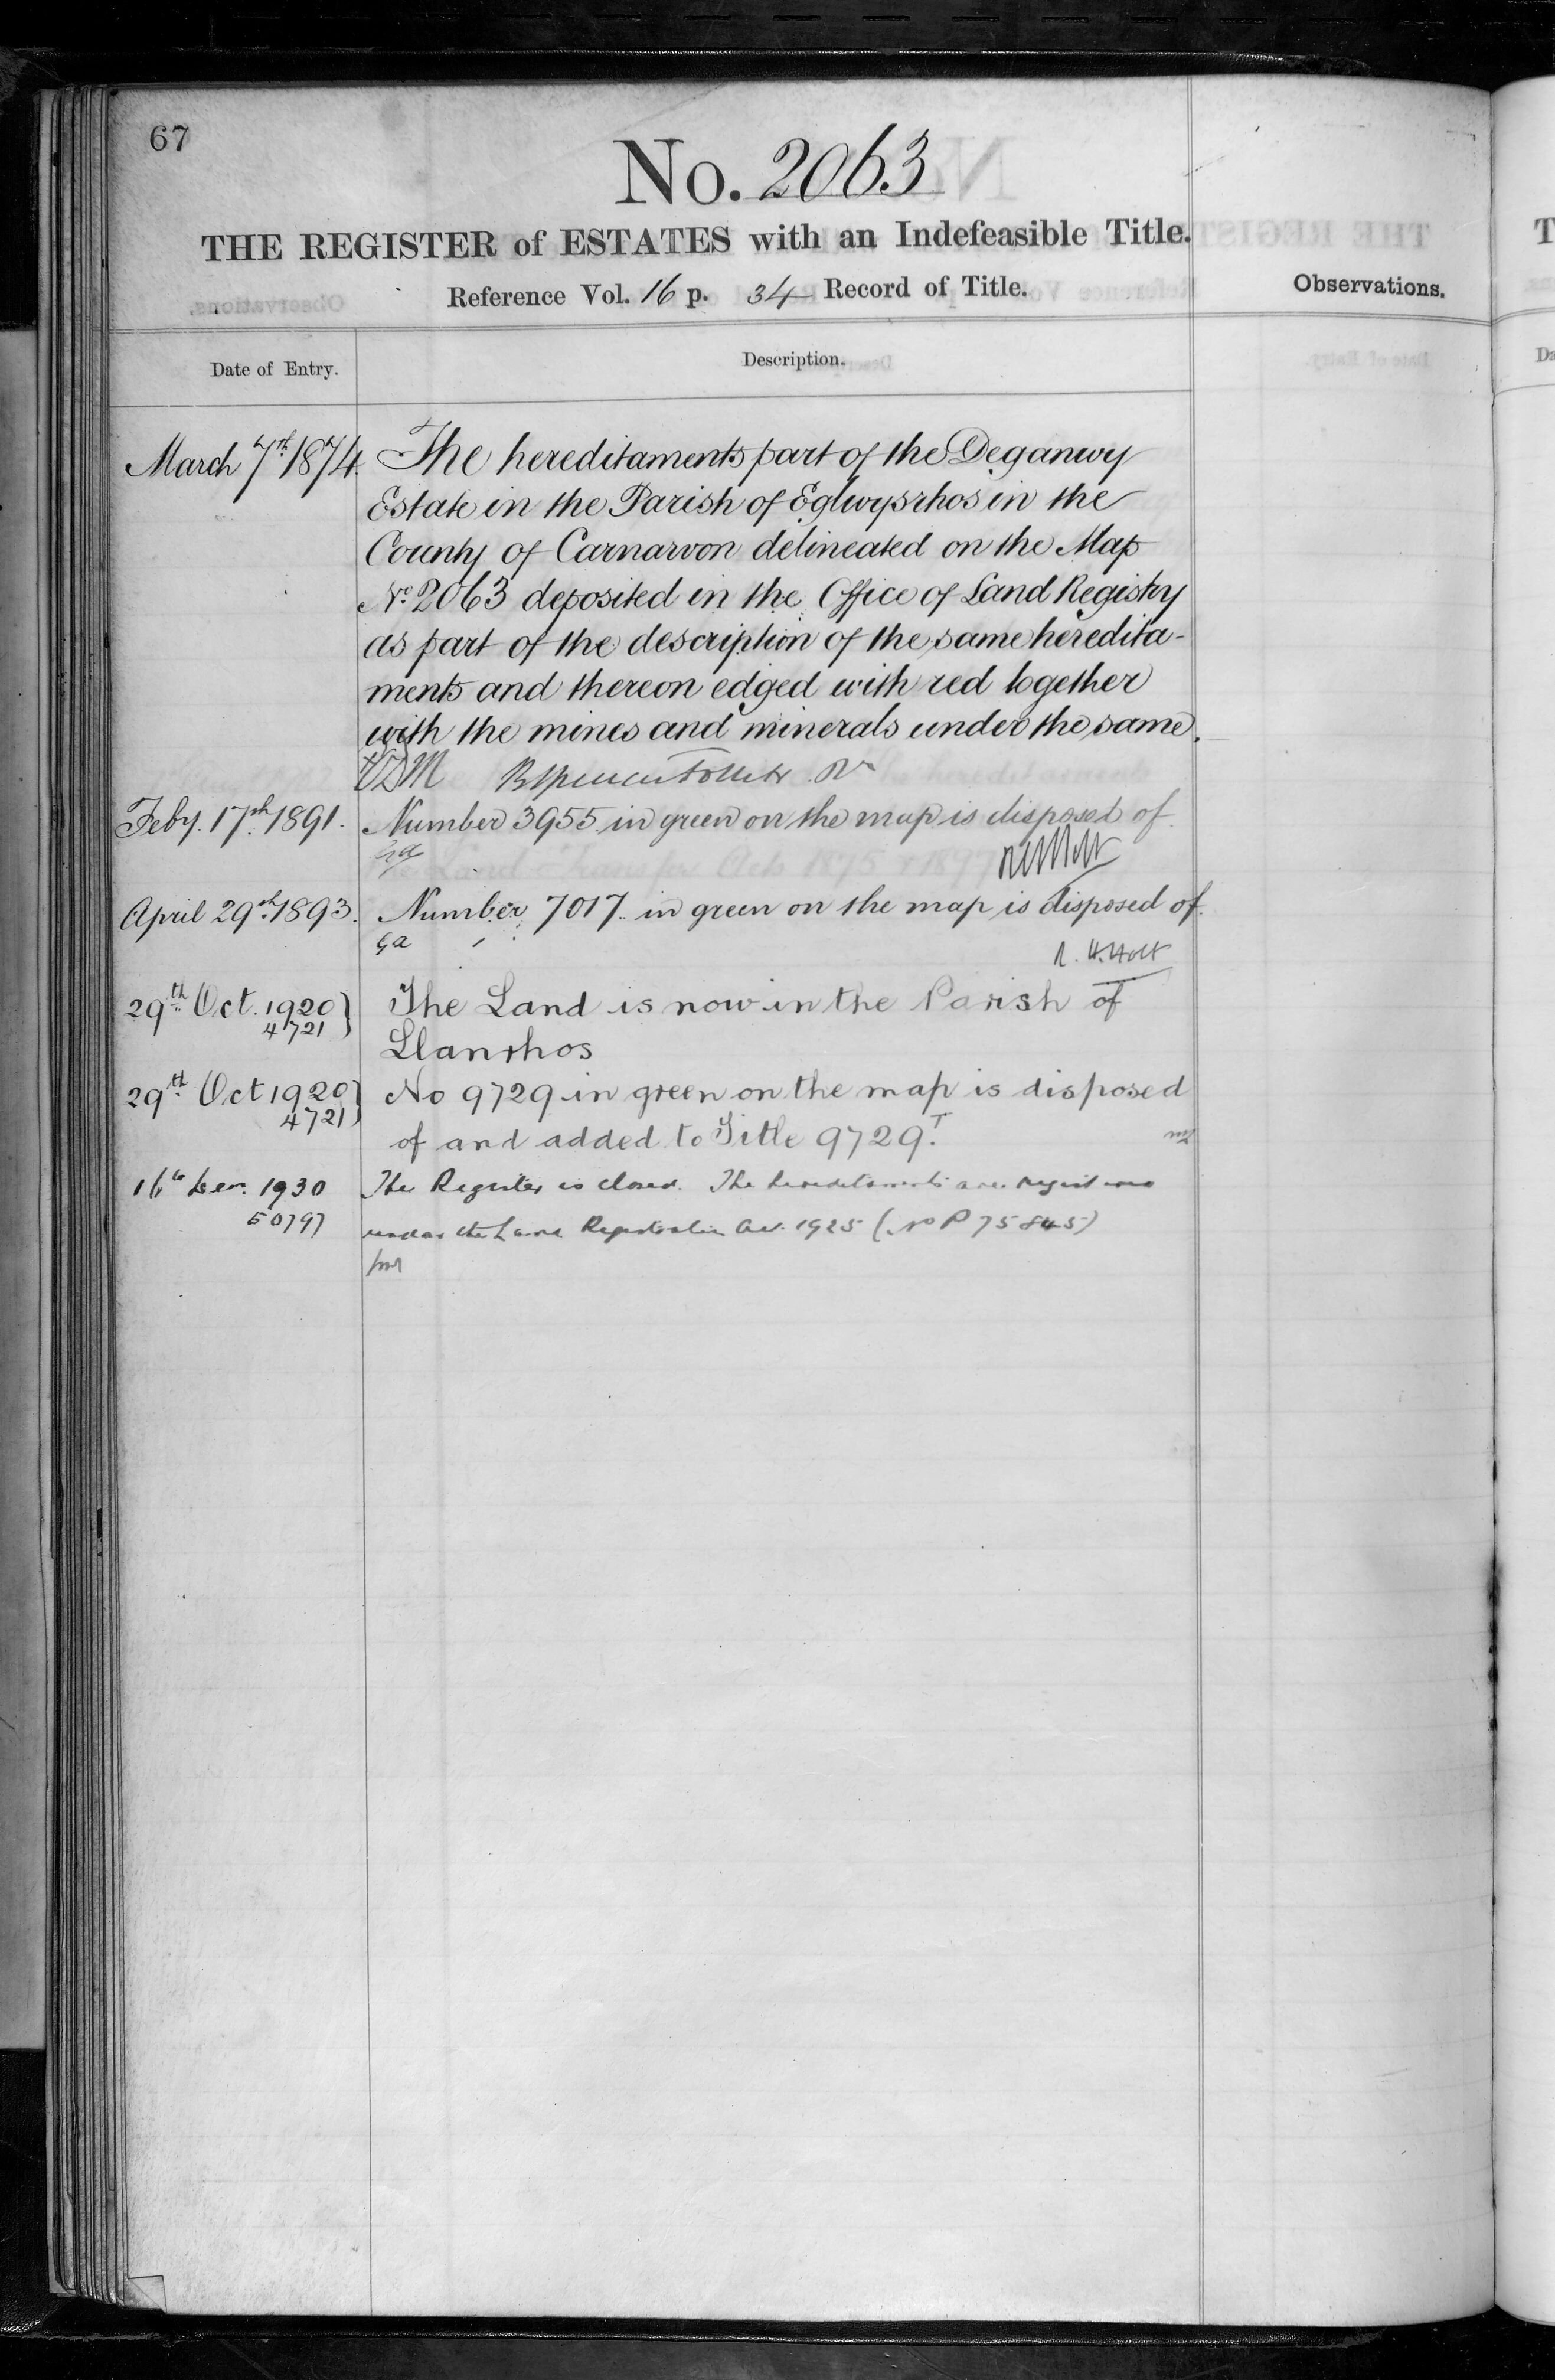 67
No. 2063
THE REGISTER of ESTATES with an Indefeasible Title.
Reference Vol. 16 p. 34 Record of Title.
Observations.
Date of Entry.
Description.
March 7th 1874. The hereditaments part of the Deganwy
Estate in the Parish of Eglwysrhos in the
County of Carnarvon delineated on the Map
No. 2063 deposited in the Office of Land Registry
as part of the description of the same heredita-
ments and thereon edged with red together
with the mines and minerals under the same.
Feby. 17th 1891. Number 3955 in green on the map is disposed of.
April 29th 1893. Number 7017 in green on the map is disposed of.
Ga
R. H. Holt
29th Oct. 1920 } The Land is now in the Parish of
4721
Llanrhos
29th Oct 1920 } No 9729 in green on the map is disposed
4721
of and added to Title 9729T.
16th Dec. 1930 The Register is closed. The hereditaments are registered
50797
under the Land Registration Act. 1925 (No P 75845)